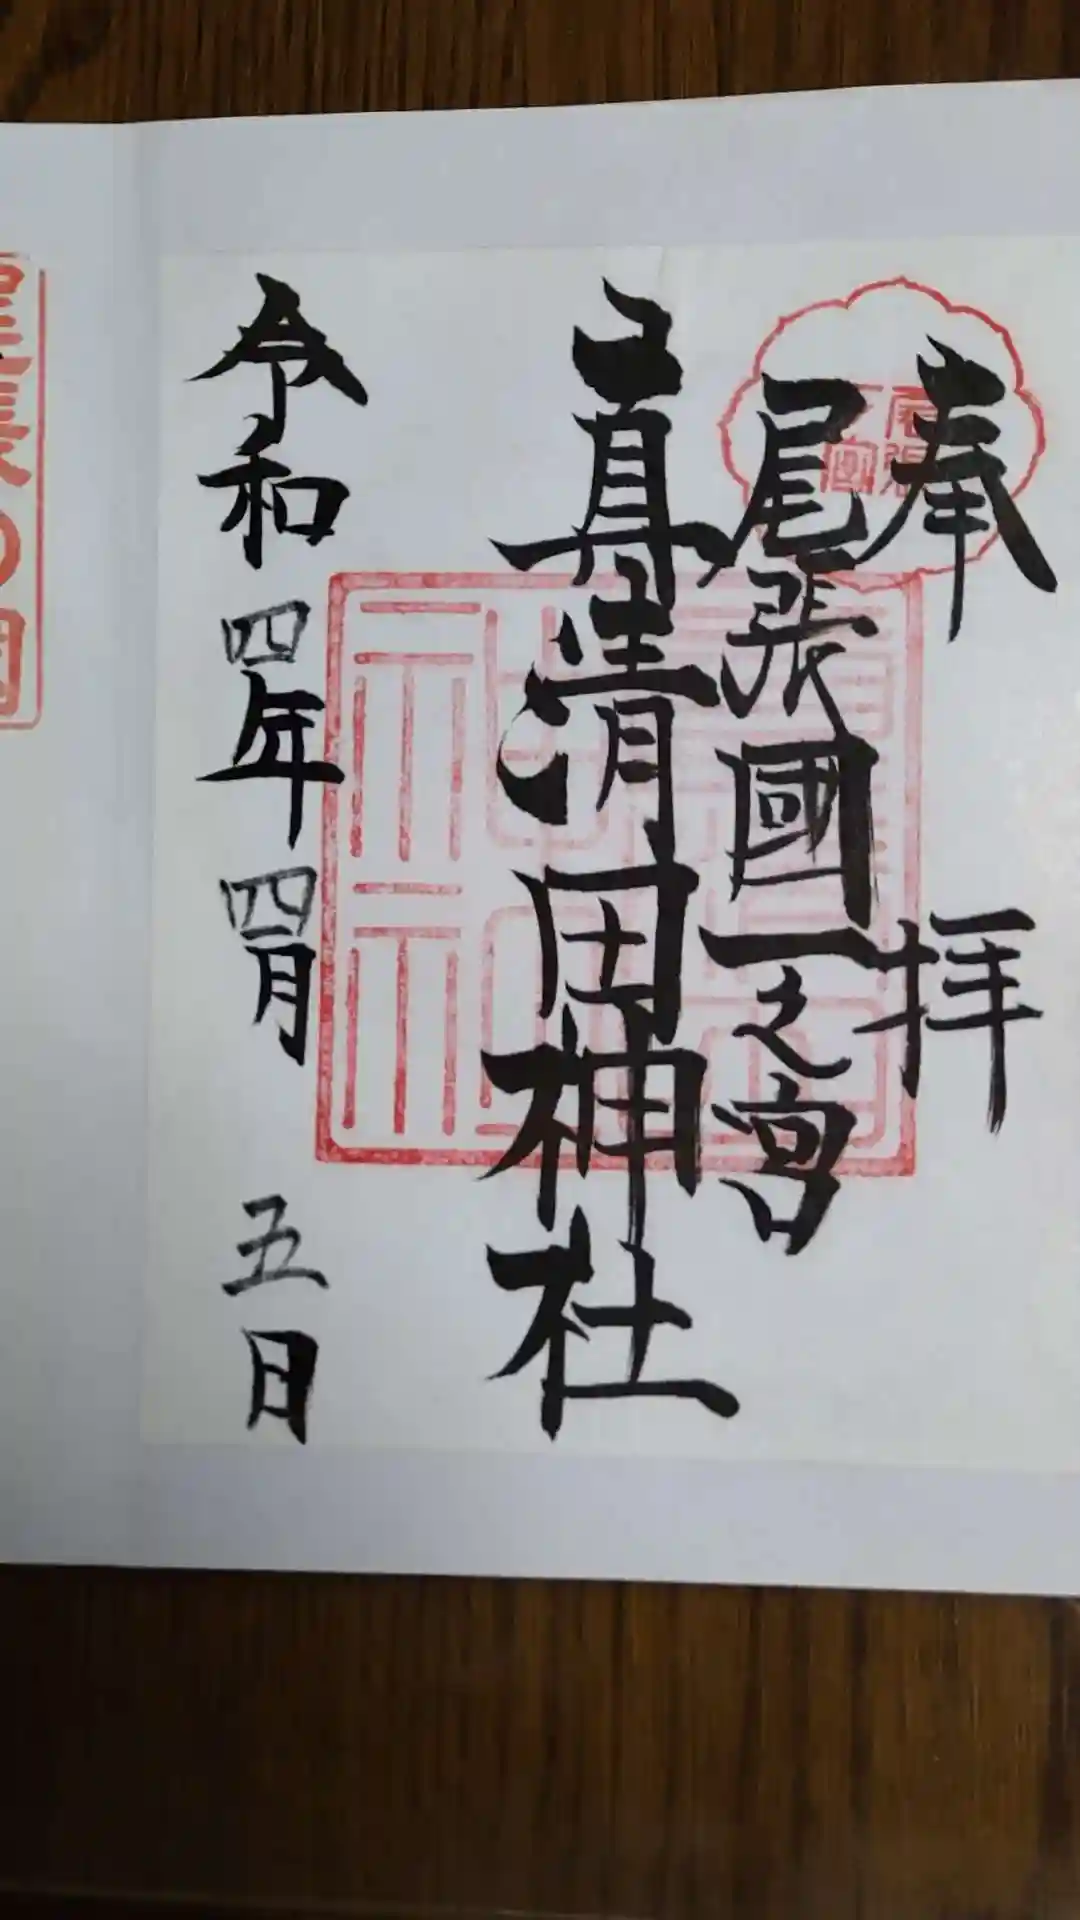 奉拝
尾張國一之宮
真清田神社
令和四年四月五日
尾張
一宮